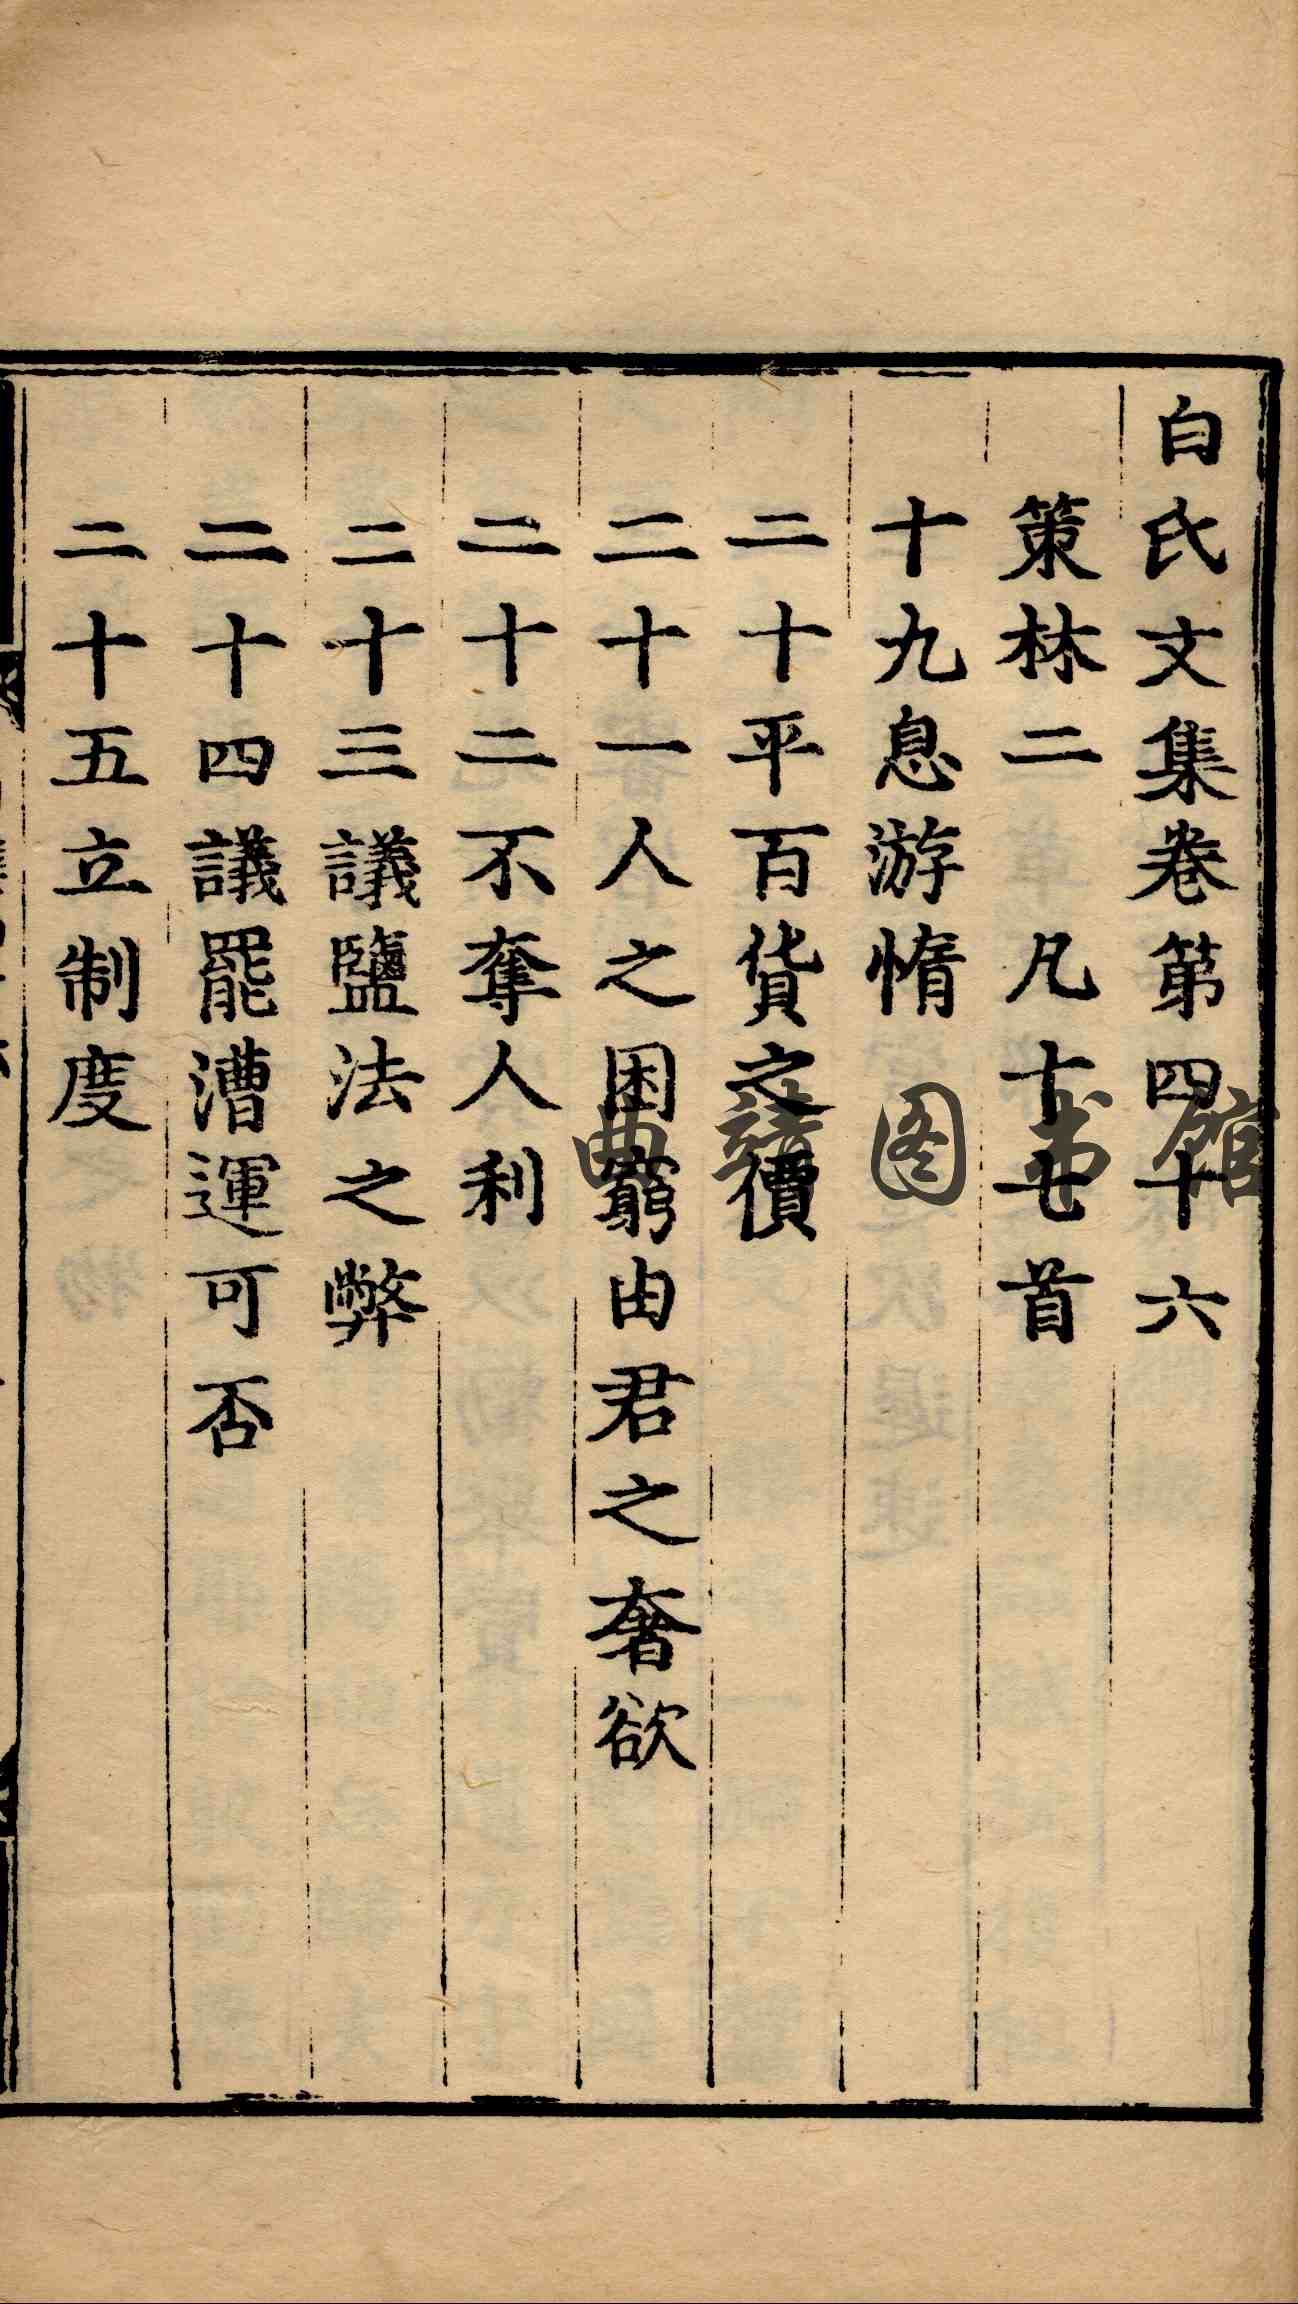 白氏文集卷第四十六
策林二 凡十七首
十九息游惰
二十平百貨之價
二十一人之困窮由君之奢欲
二十二不奪人利
二十三議鹽法之弊
二十四議罷漕運可否
二十五立制度
典籍图书馆